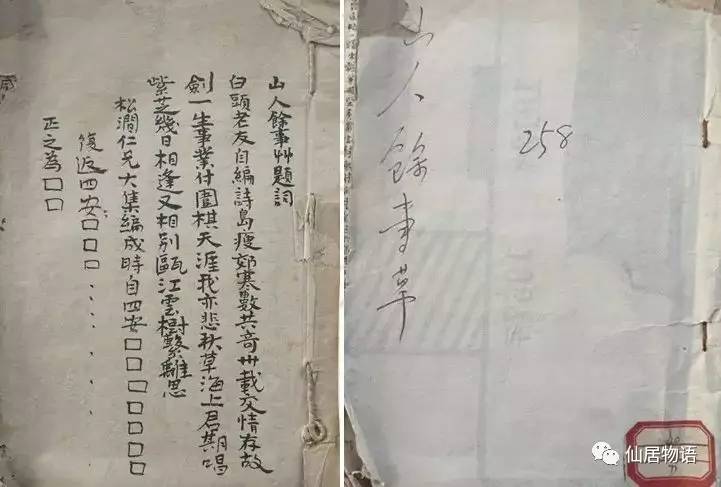 山人餘事艸題詞
白頭老友自編詩島瘦郊寒數共奇卅載交情存故
劍一生事業付圍棋天涯我亦悲秋草海上君其唱
紫芝幾日相逢又相別甌江雲樹繫離思
松澗仁兄大集編成時自四安□□□□□□□
復返四安□□□、、、、、
正之為□□
山人餘事草
258
仙居物语